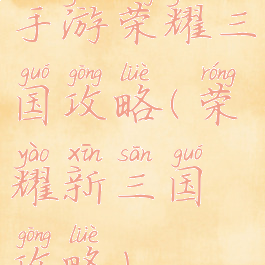 手游荣耀三
guó gōng lüè róng
国攻略(荣
yào xīn sān guó
耀新三国
gōng lüè
攻略)